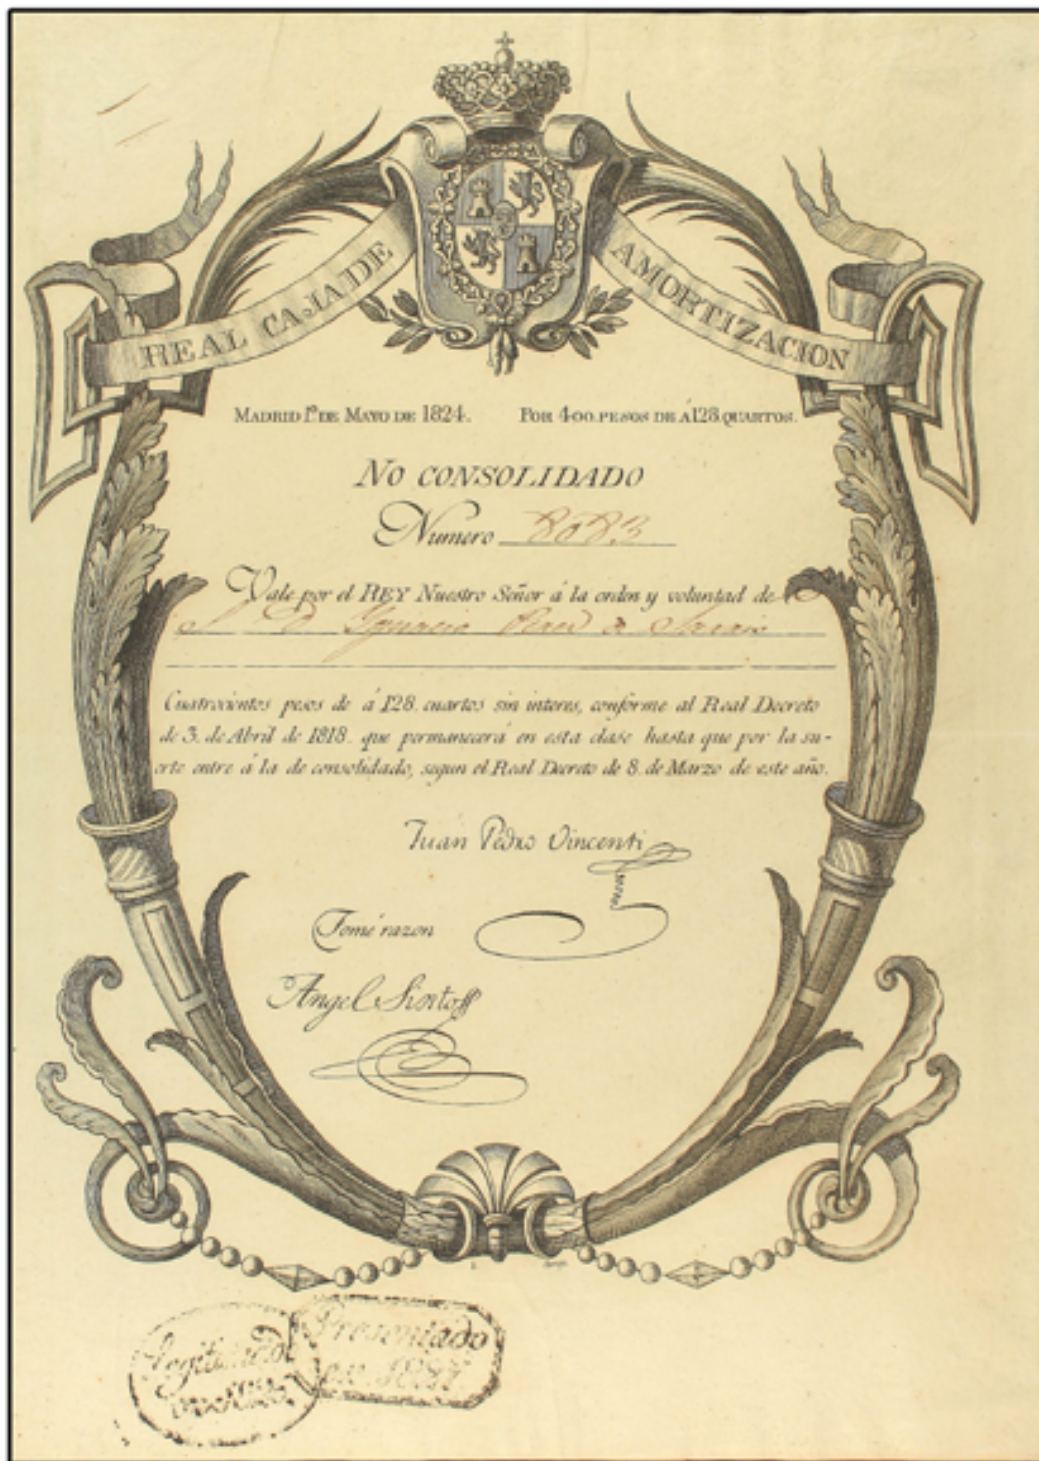 REAL CAJA DE AMORTIZACION
MADRID 1º DE MAYO DE 1824. POR 400. PESOS DE Á 128. QUARTOS.
NO CONSOLIDADO
Numero 8083
Vale por el REY Nuestro Señor á la orden y voluntad de
Ygnacio
Cuatrocientos pesos de á 128. cuartos sin interes, conforme al Real Decreto
de 3. de Abril de 1818. que permanecerá en esta clase hasta que por la su-
erte entre á la de consolidado, segun el Real Decreto de 8. de Marzo de este año.
Juan Pedro Vincenti
Tomé razon
Angel Sixto
Presentado